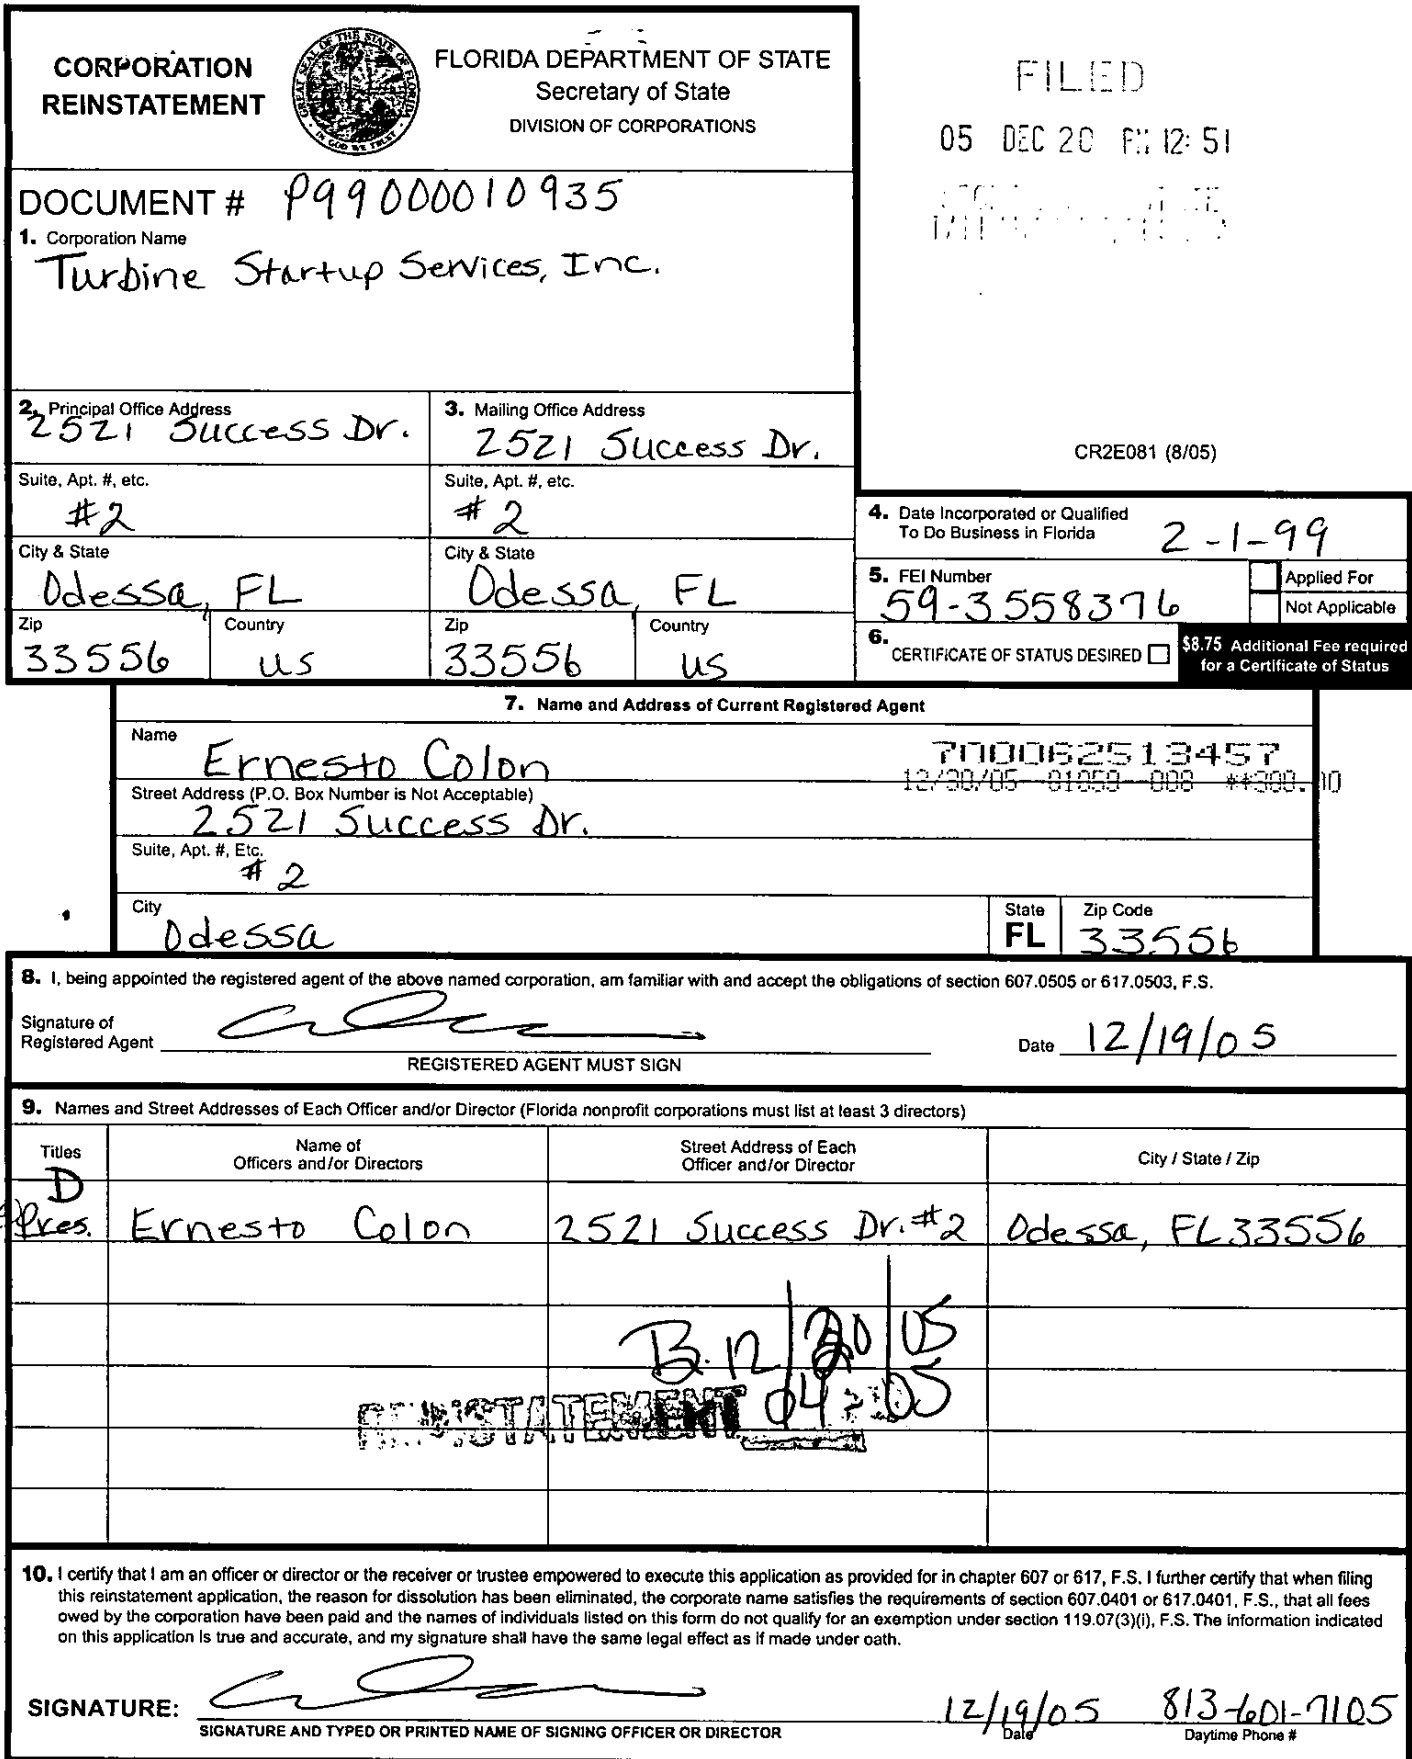 CORPORATION
REINSTATEMENT
GREAT SEAL OF THE STATE OF FLORIDA
IN GOD WE TRUST
FLORIDA DEPARTMENT OF STATE
Secretary of State
DIVISION OF CORPORATIONS
FILED
05 DEC 20 PM 12: 51
DOCUMENT # P99000010935
1. Corporation Name
Turbine Startup Services, Inc.
2. Principal Office Address
2521 Success Dr.
3. Mailing Office Address
2521 Success Dr.
CR2E081 (8/05)
Suite, Apt. #, etc.
#2
Suite, Apt. #, etc.
#2
4. Date Incorporated or Qualified
To Do Business in Florida
2-1-99
City & State
Odessa, FL
City & State
Odessa, FL
5. FEI Number
59-3558376
Applied For
Not Applicable
Zip
33556
Country
US
Zip
33556
Country
US
6.
CERTIFICATE OF STATUS DESIRED
$8.75 Additional Fee required
for a Certificate of Status
7. Name and Address of Current Registered Agent
Name
Ernesto Colon
700062513457
12/30/05--01059--008 **300.00
Street Address (P.O. Box Number is Not Acceptable)
2521 Success Dr.
Suite, Apt. #, Etc.
#2
City
Odessa
State
FL
Zip Code
33556
8. I, being appointed the registered agent of the above named corporation, am familiar with and accept the obligations of section 607.0505 or 617.0503, F.S.
Signature of
Registered Agent
REGISTERED AGENT MUST SIGN
Date 12/19/05
9. Names and Street Addresses of Each Officer and/or Director (Florida nonprofit corporations must list at least 3 directors)
Titles
Name of
Officers and/or Directors
Street Address of Each
Officer and/or Director
City / State / Zip
D
Pres.
Ernesto Colon
2521 Success Dr. #2
Odessa, FL 33556
B. 12/20/05
REINSTATEMENT 04-05
10. I certify that I am an officer or director or the receiver or trustee empowered to execute this application as provided for in chapter 607 or 617, F.S. I further certify that when filing
this reinstatement application, the reason for dissolution has been eliminated, the corporate name satisfies the requirements of section 607.0401 or 617.0401, F.S., that all fees
owed by the corporation have been paid and the names of individuals listed on this form do not qualify for an exemption under section 119.07(3)(i), F.S. The information indicated
on this application is true and accurate, and my signature shall have the same legal effect as if made under oath.
SIGNATURE:
SIGNATURE AND TYPED OR PRINTED NAME OF SIGNING OFFICER OR DIRECTOR
12/19/05
Date
813-601-7105
Daytime Phone #